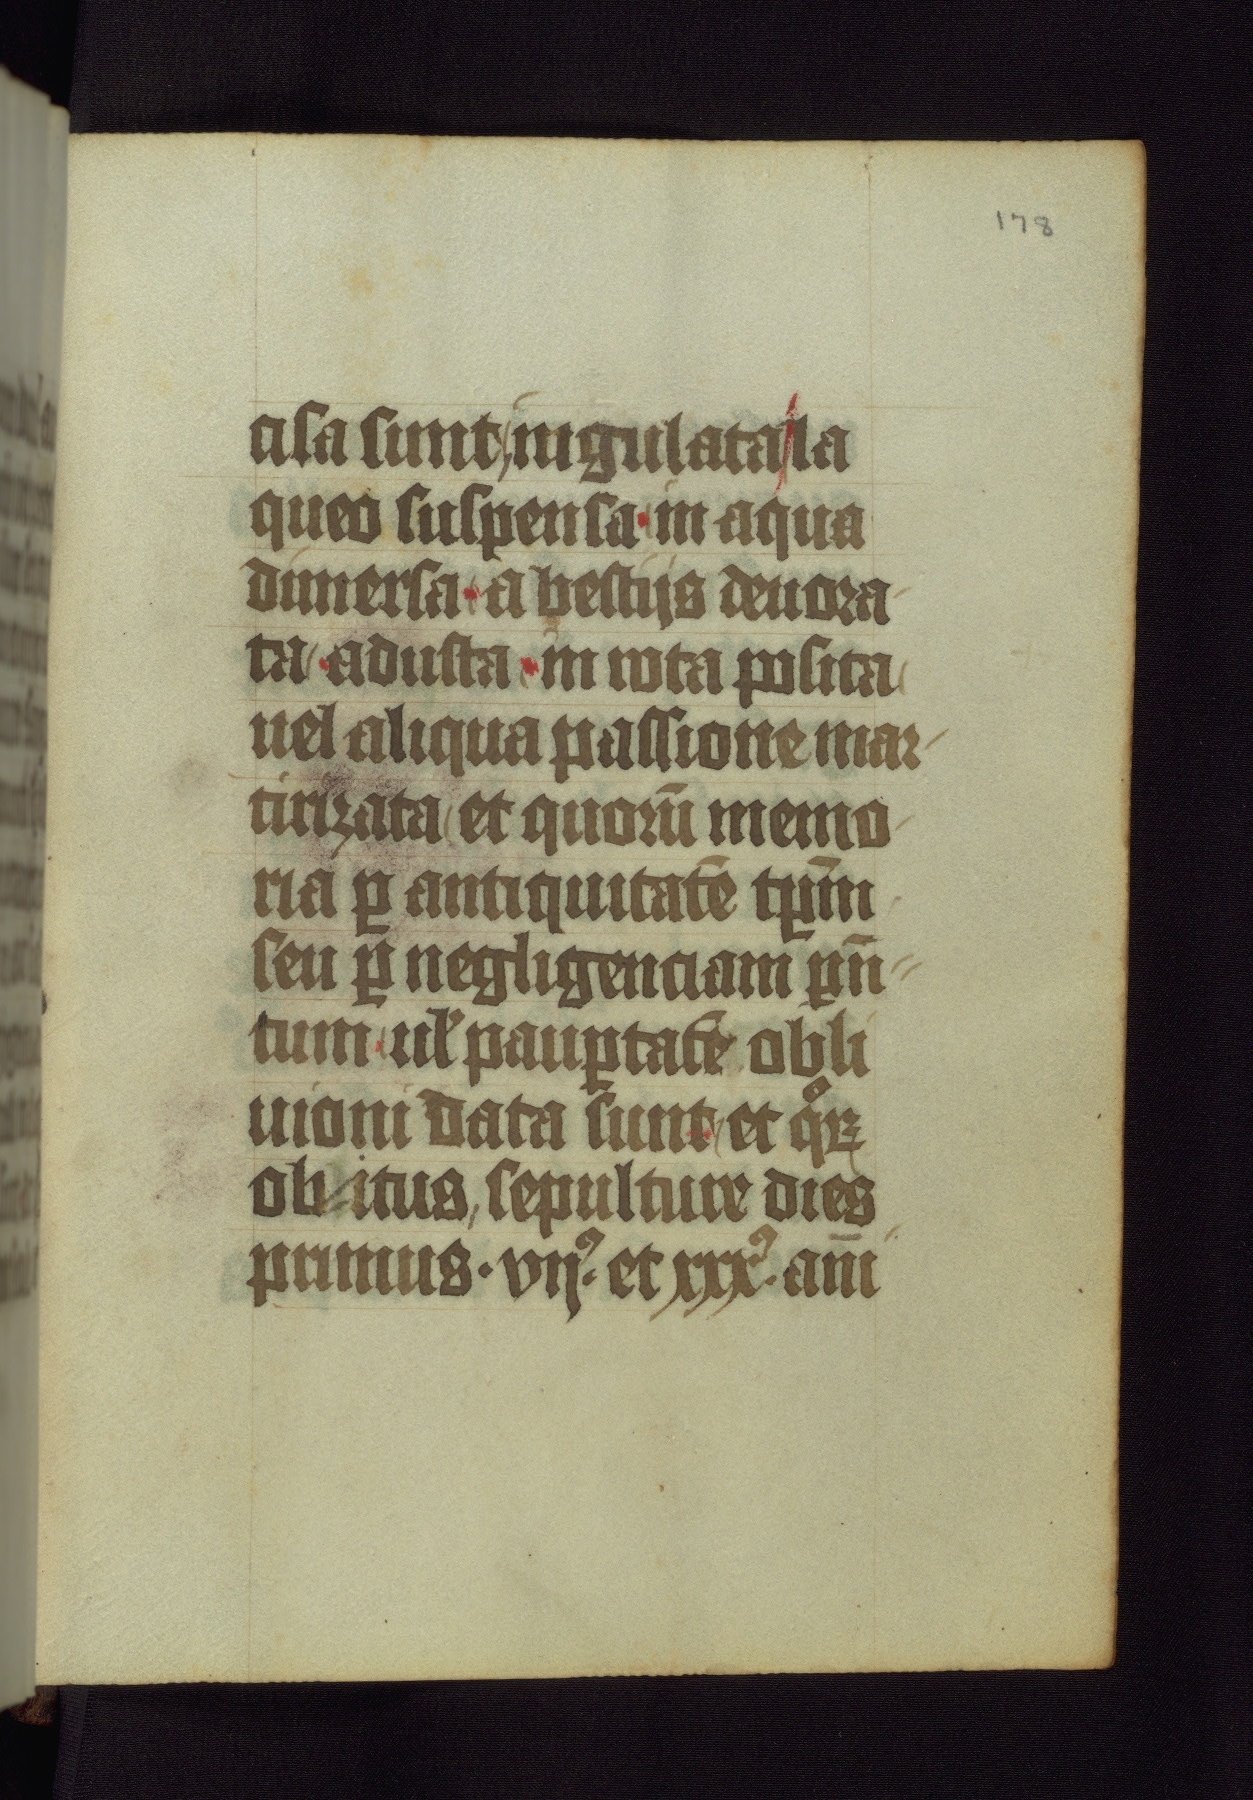 178
cisa sunt, iugulata / la
queo suspensa · in aqua
dimersa · a bestijs deuora
ta · adusta · in rota posita
uel aliqua passione mar-
tirizata et quorū memo
ria ꝑ antiquitatē tꝑm̄
seu ꝑ negligenciam ꝑn̄-
tum · ul' pauꝑtatē obli
uioni data sunt · et qͦꝝ
obitus, sepulture dies
primus · vijꝰ · et xxxꝰ · an̄i